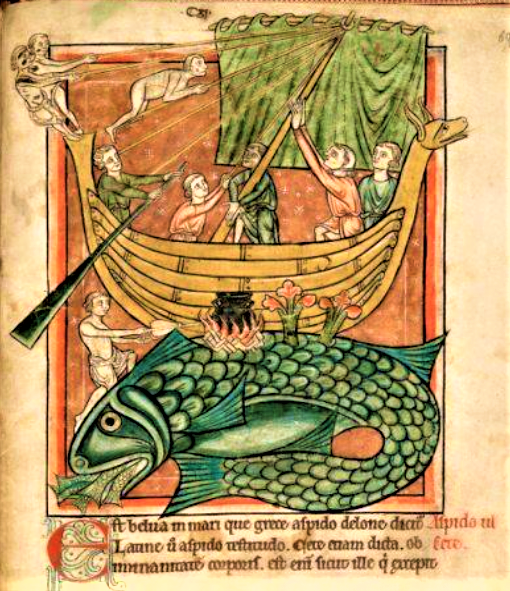 Est belua in mari que grece aspido delone dicit᷑ Aspido ul
Latine ū aspido testitudo. Cete etiam dicta. ob cete.
inmanitatē corporis. est eni̅ sicut ille q̇ excepit